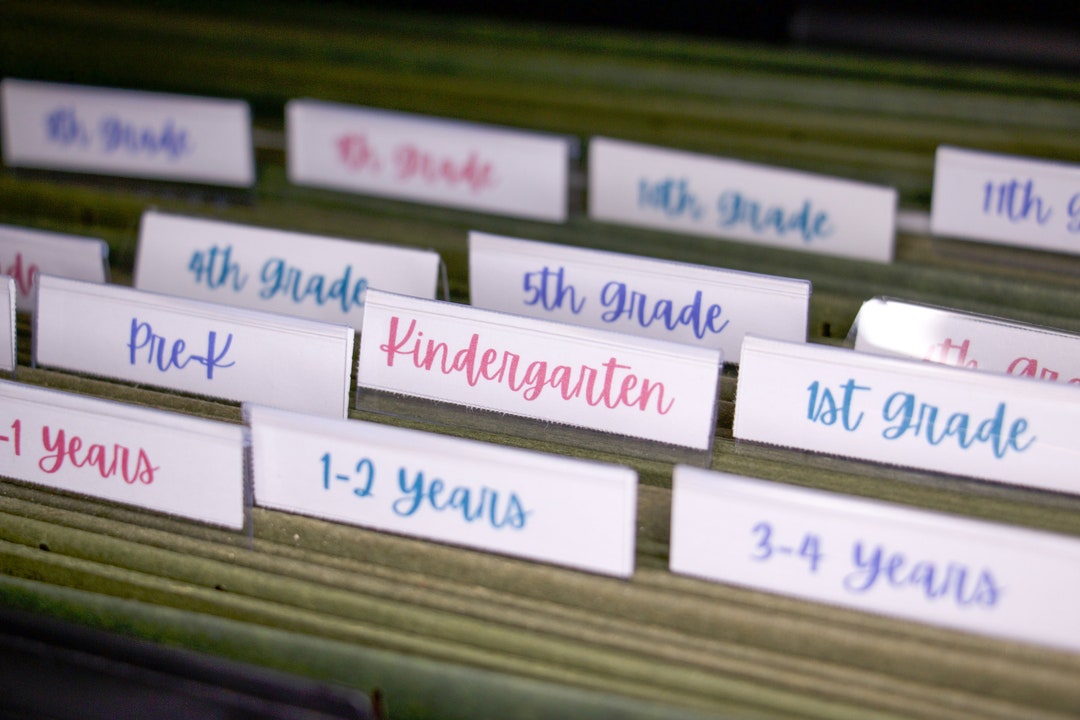 8th Grade
9th Grade
10th Grade
11th G
4th Grade
5th Grade
th Gra
Pre-K
Kindergarten
1st Grade
-1 Years
1-2 Years
3-4 Years